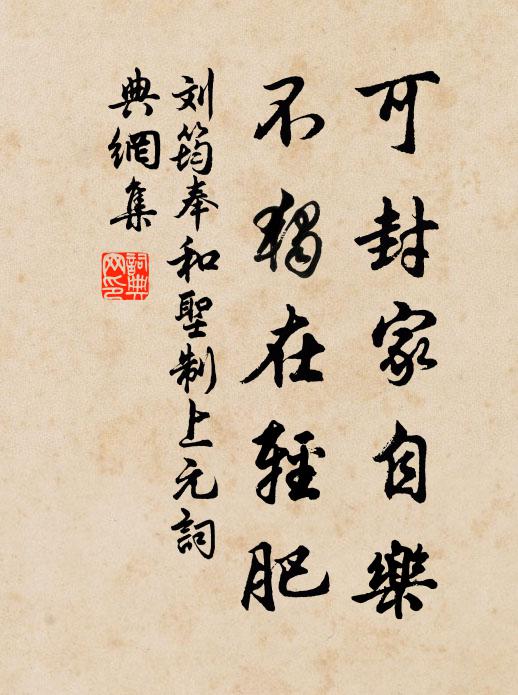 可封家自樂
不獨在輕肥
刘筠奉和聖制上元詞
典網集
詞典網印